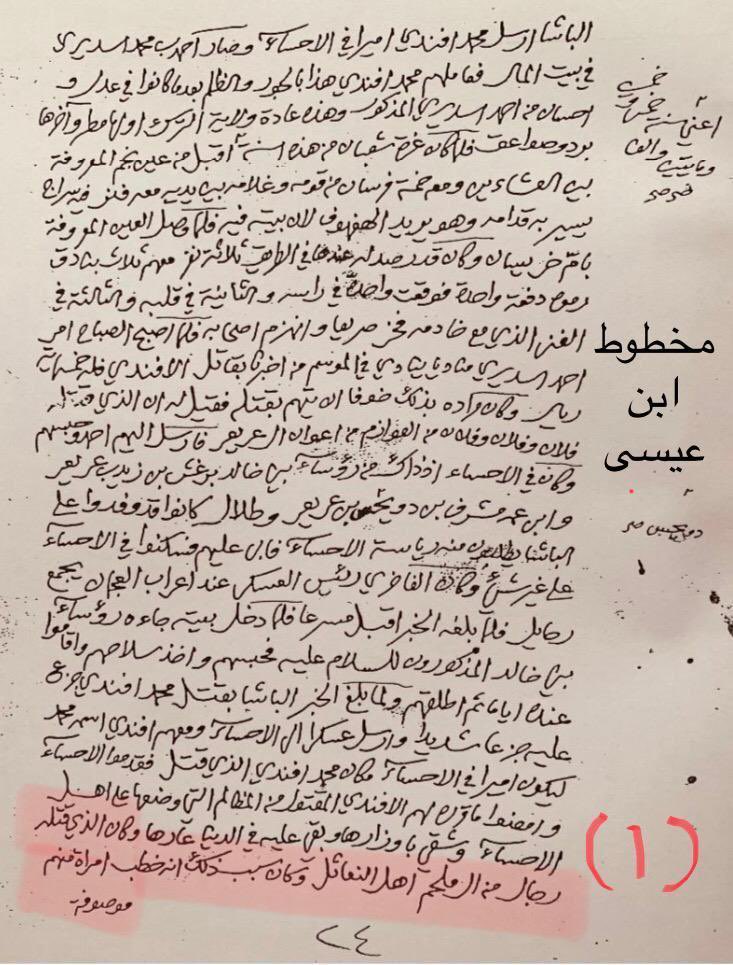 الباشا ارسل محمد افندي اميرا في الاحساء وصار احمد بن محمد السديري
في بيت المال فعاملهم محمد افندي هذا بالجور والظلم بعد ما كانوا في عدل و
احسان من احمد السديري المذكور وهذه عادة ولاية الترك اولها مطر وآخرها
برد وصواعق فلما كان غرة شعبان من هذه السنة اقبل من عين نجم المعروفة
بين العشاءين ومعه خمسة فرسان من قومه وغلامه بين يديه معه فنر فيه سراج
يسير به قدامه وهو يريد الهفهوف لان بيته فيه فلما وصل العين المعروفة
بام خريسان وكان قد رصد له عندها في الطريق ثلاثة نفر معهم ثلاث بنادق
رموه دفعة واحدة فوقعت واحدة في راسه والثانية في قلبه والثالثة في
الفنر الذي مع خادمه فخر صريعا وانهزم اصحابه فلما اصبح الصباح امر
احمد السديري مناديا ينادي في الموسم من اخبرنا بقاتل الافندي فله خمسمائة
ريال وكان مراده بذلك خوفا ان يتهم بقتله فقيل له ان الذي قتله
فلان وفلان وفلان من العوازم من اعوان ال عريعر فارسل اليهم احمد وحبسهم
وكان في الاحساء اذ ذاك من رؤساء بني خالد برغش بن زيد بن عريعر
وابن عمه مشرف بن دويحس بن عريعر وطلال كانوا قد وفدوا على
الباشا يطلبون منه رياسة الاحساء فابى عليهم فسكنوا في الاحساء
على غير شيء وكان الفاخري رئيس العسكر عند اعراب العجمان يجمع
رحايل فلما بلغه الخبر اقبل مسرعا فلما دخل بيته جاءه رؤساء
بني خالد المذكورون للسلام عليه فحبسهم واخذ سلاحهم واقاموا
عنده اياما ثم اطلقهم ولما بلغ الخبر الباشا بقتل محمد افندي جزع
عليه جزعا شديدا وارسل عسكرا الى الاحساء ومعهم افندي اسمه محمد
ليكون اميرا في الاحساء مكان محمد افندي الذي قتل فقدموا الاحساء
وامضوا ما قرره لهم الافندي المقتول من المظالم التي وضعها على اهل
الاحساء وشقي باوزارها وبقي عليه في الدنيا عارها وكان الذي قتله
رجال من ال ملحم اهل النعاثل وكان سبب ذلك انه خطب امراة منهم
موصوفة
٢٤
اعني سنة خمس و
ومايتين والف
دويحس صح
مخطوط
ابن
عيسى
(١)